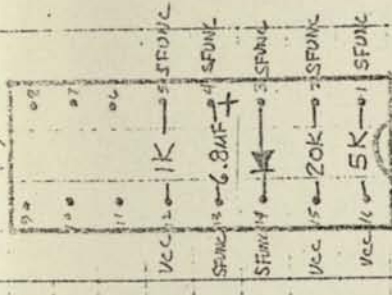 9 8
10 7
11 6
Vcc 12 1K 5 SFUNC
SFUNC 13 6.8MF + 4 SFUNC
SFUNC 14 3 SFUNC
Vcc 15 20K 2 SFUNC
Vcc 16 15K 1 SFUNC